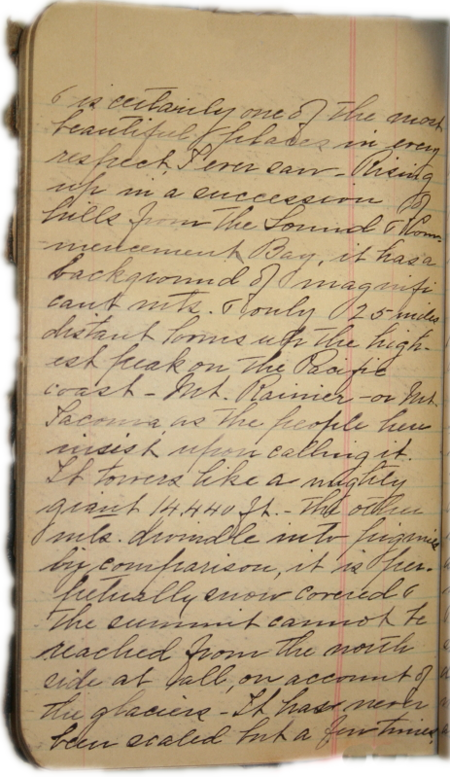 & is certainly one of the most
beautiful places in every
respect, I ever saw - Rising
up in a succession of
hills from the Sound & Com-
mencement Bay, it has a
background of magnifi
cant mts. & only 25 miles
distant looms up the high-
est peak on the Pacific
coast - Mt. Rainier - or Mt
Tacoma as the people here
insist upon calling it.
It towers like a mighty
giant 14,440 ft. - the other
mts. dwindle into pigmies
by comparison, it is per-
petually snow covered &
the summit cannot be
reached from the north
side at all, on account of
the glaciers - It has never
been scaled but a few times,